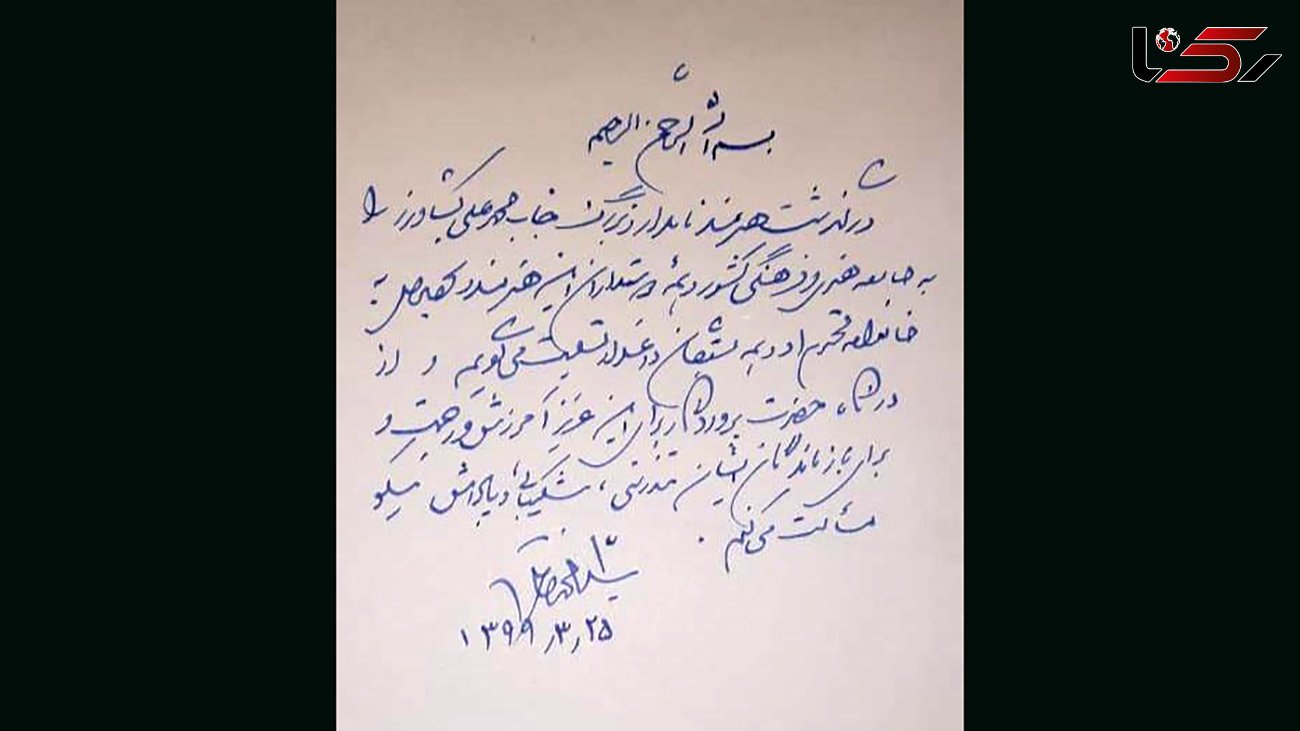 رکنا
بسم الله الرحمن الرحیم
درگذشت هنرمند نامدار و بزرگ جناب محمدعلی کشاورز را
به جامعه هنری و فرهنگی کشور و همهٔ دوستداران این هنرمند و
خانواده محترم او و همه داغدار تسلیت می‌گویم و از
درگاه حضرت پروردگار برای این عزیز آمرزش و رحمت و
برای بازماندگان ایشان تندرستی، شکیبایی و پاداش نیکو
مسألت می‌کنم.
سید محمد خاتمی
۱۳۹۹٫۳٫۲۵